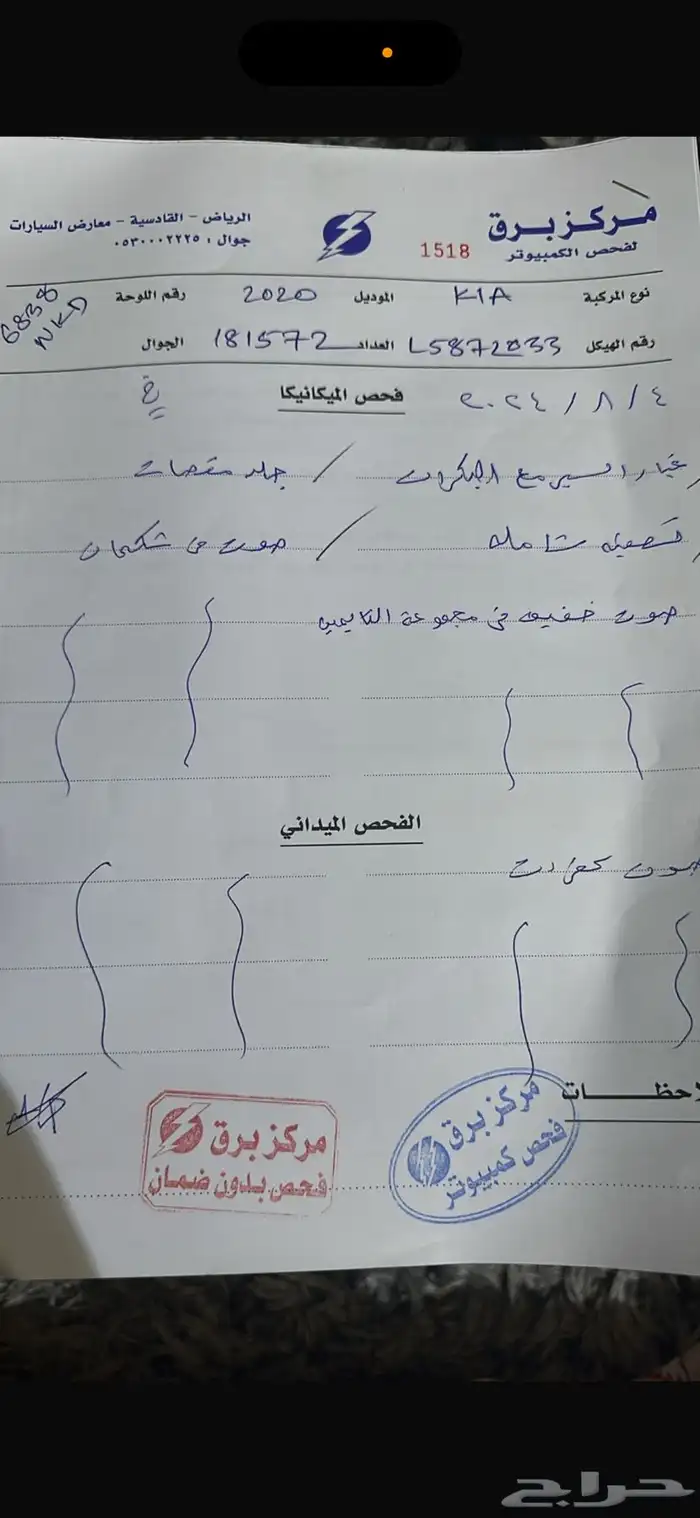 مركز برق
لفحص الكمبيوتر
1518
الرياض - القادسية - معارض السيارات
جوال : ٠٥٣٠٠٠٢٢٢٥
نوع المركبة KIA الموديل 2020 رقم اللوحة 6838 NKD
رقم الهيكل L5872033 العداد 181572 الجوال
٢٠٢٤ / ٨ / ٤ فحص الميكانيكا
غيار السير مع البكرات / جلد مقصات
تصفية شاملة / صوت في شكمان
صوت خفيف في مجموعة التايمين
الفحص الميداني
صوت كفرات
احظات
مركز برق
فحص كمبيوتر
مركز برق
فحص بدون ضمان
حراج